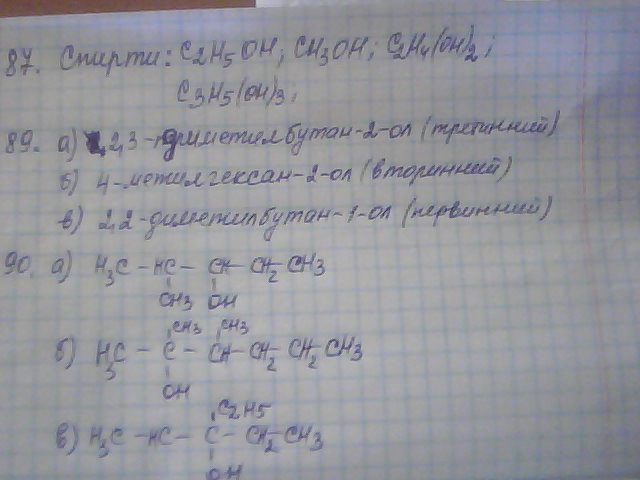 87. Спирти: C2H5OH; CH3OH; C2H4(OH)2;
C3H5(OH)3;
89. а) 2,3-диметилбутан-2-ол (третинний)
б) 4-метилгексан-2-ол (вторинний)
в) 2,2-диметилбутан-1-ол (первинний)
90. а) H3C - HC - CH - CH2 - CH3
CH3 OH
CH3 CH3
б) H3C - C - CH - CH2 - CH2 - CH3
OH
C2H5
в) H3C - HC - C - CH2 - CH3
OH